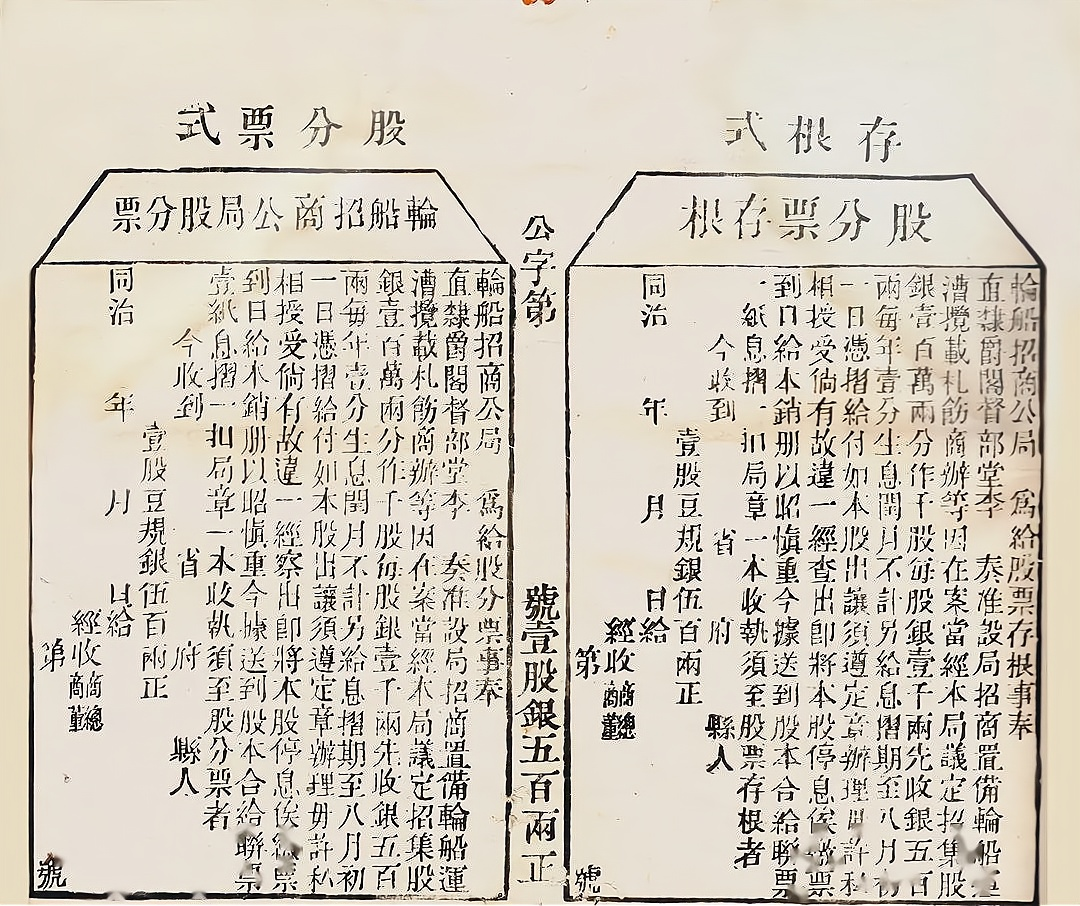 存根式
股分票存根
輪船招商公局　爲給股票存根事奉
直隸爵閣督部堂李　奏准設局招商置備輪船運
漕攬載札飭商辦等因在案當經本局議定招集股
銀壹百萬兩分作千股每股銀壹千兩先收銀五百
兩每年壹分生息閏月不計另給息摺期至八月初
一日憑摺給付如本股出讓須遵定章辦理毋許私
相授受倘有故違一經查出卽將本股停息俟繳票
到日給本銷册以昭愼重今據送到股本合給聯票
一紙息摺一扣局章一本收執須至股票存根者
今收到　省　府　縣人
壹股豆規銀伍百兩正
同治　年　月　日給
經收商總商董
第　號
公字第　號壹股銀五百兩正
股分票式
輪船招商公局股分票
輪船招商公局　爲給股分票事奉
直隸爵閣督部堂李　奏准設局招商置備輪船運
漕攬載札飭商辦等因在案當經本局議定招集股
銀壹百萬兩分作千股每股銀壹千兩先收銀五百
兩每年壹分生息閏月不計另給息摺期至八月初
一日憑摺給付如本股出讓須遵定章辦理毋許私
相授受倘有故違一經察出卽將本股停息俟繳票
到日給本銷册以昭愼重今據送到股本合給聯票
壹紙息摺一扣局章一本收執須至股分票者
今收到　省　府　縣人
壹股豆規銀伍百兩正
同治　年　月　日給
經收商總商董
第　號